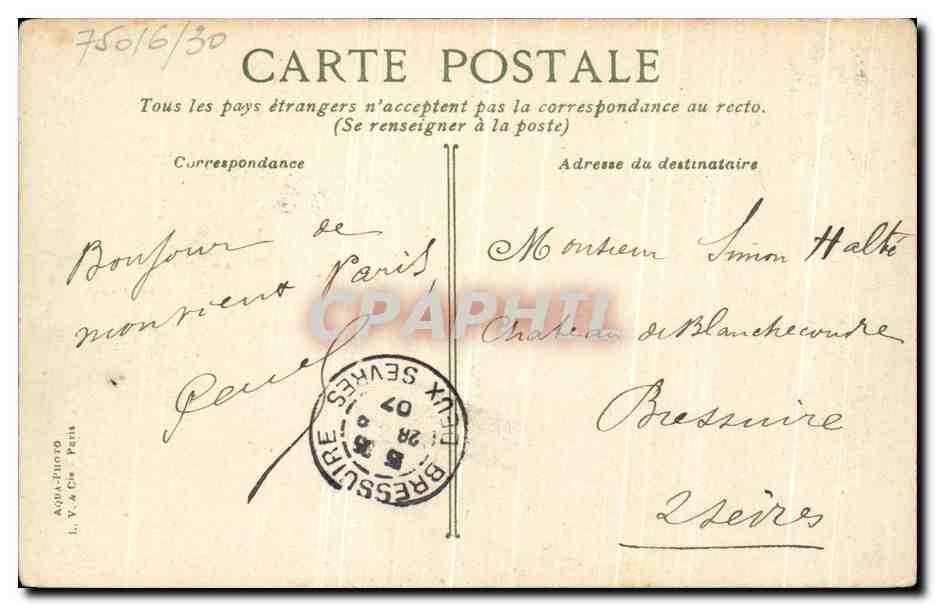 750/6/30
CARTE POSTALE
Tous les pays étrangers n'acceptent pas la correspondance au recto.
(Se renseigner à la poste)
Correspondance
Bonjour de
mon vieux Paris,
Paul
Adresse du destinataire
Monsieur Simon Halté
Chateau de Blanchecoudre
Bressuire
2 Sèvres
CPAPHIL
BRESSUIRE
DEUX SEVRES
28
07
AQUA-PHOTO
L. V. & Cie - Paris